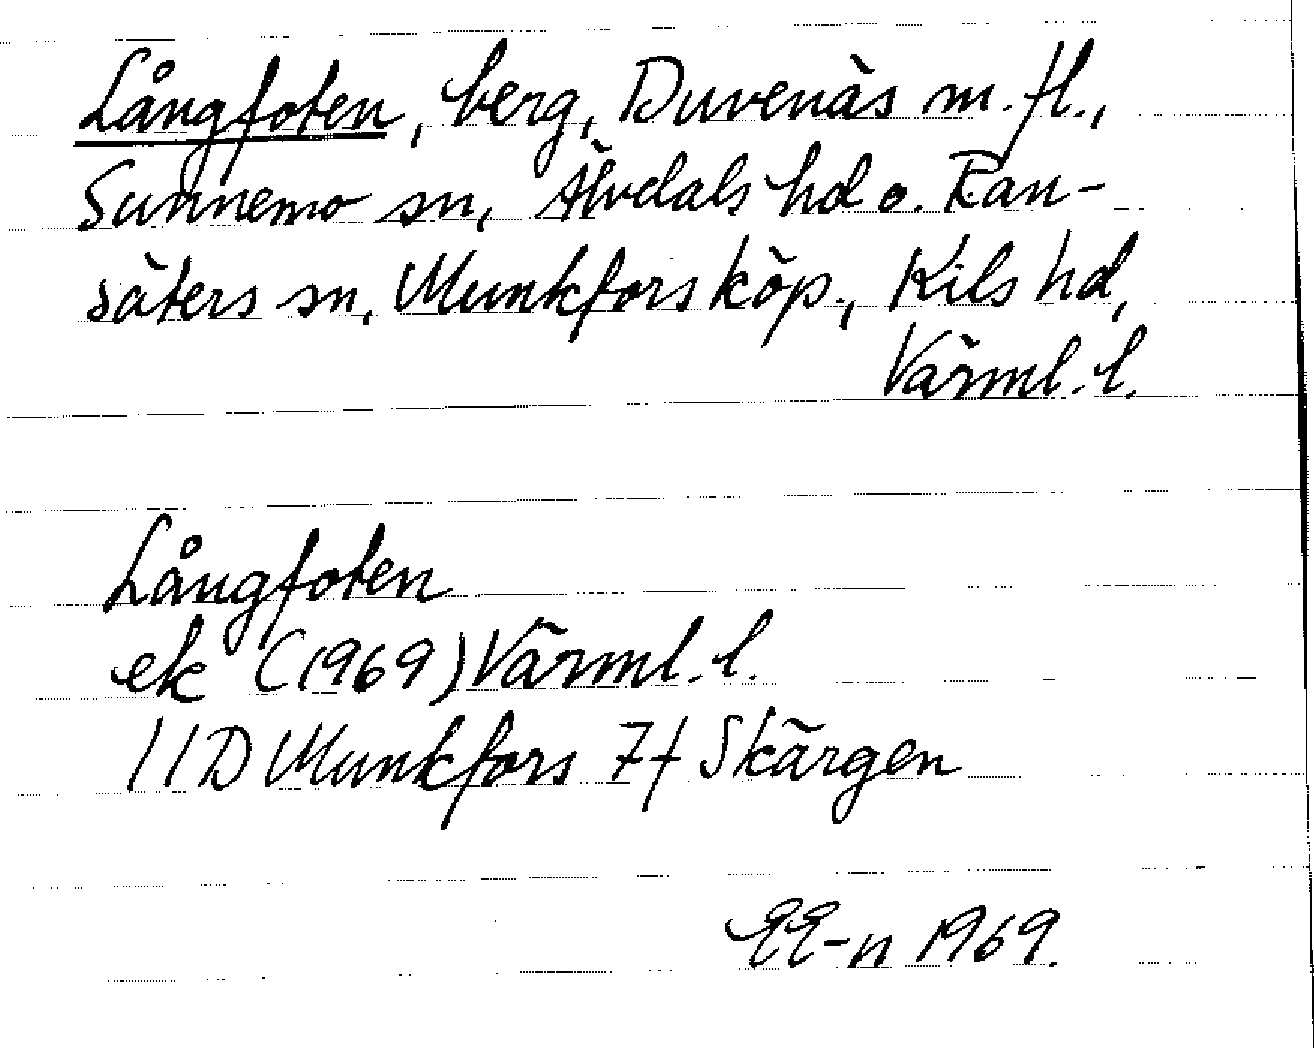 Långfoten, berg, Duvenäs m. fl.,
Sunnemo sn, Älvdals hd o. Ran-
säters sn, Munkfors köp., Kils hd,
Värml. l.
Långfoten
ek (1969) Värml. l.
11D Munkfors 7f Skärgen
EE-n 1969.